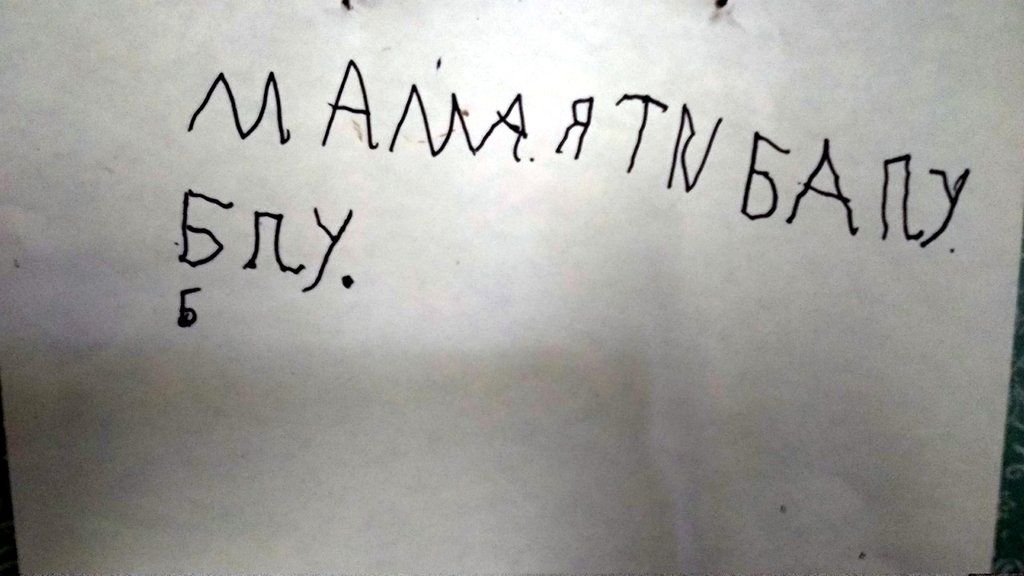 МАМА. Я ТИ БАПУ.
БПУ.
Б